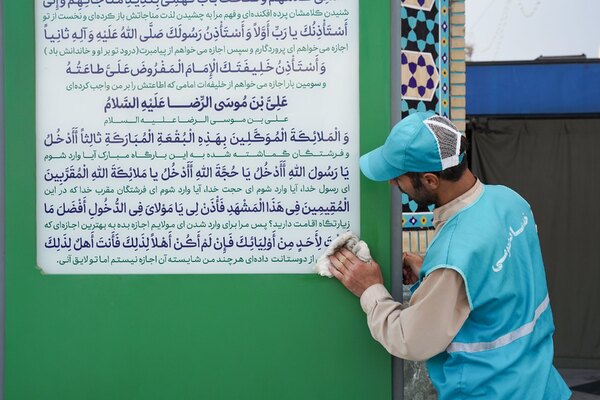 شنیدن کلامشان پرده افکنده‌ای و فهم مرا به چشیدن لذت مناجاتشان باز کرده‌ای و نخست از تو
أَسْتَأْذِنُكَ يا رَبِّ أَوَّلاً وَ أَسْتَأْذِنُ رَسُولَكَ صَلَّى اللَّهُ عَلَيْهِ وَآلِهِ ثانِياً
اجازه می‌خواهم ای پروردگارم و سپس اجازه می‌خواهم از پیامبرت (درود تو بر او و خاندانش باد)
وَ أَسْتَأْذِنُ خَلِيفَتَكَ الْإِمامَ الْمَفْرُوضَ عَلَيَّ طاعَتُهُ
و سومین بار اجازه می‌خواهم از خلیفه‌ات امامی که اطاعتش را بر من واجب کرده‌ای
عَلِيَّ بْنَ مُوسَى الرِّضا عَلَيْهِ السَّلامُ
علی بن موسی الرضا علیه السلام
وَ الْمَلائِكَةَ الْمُوَكَّلِينَ بِهذِهِ الْبُقْعَةِ الْمُبارَكَةِ ثالِثاً أَأَدْخُلُ
و فرشتگان گماشته شده به این بارگاه مبارک آیا وارد شوم
يا رَسُولَ اللَّهِ أَأَدْخُلُ يا حُجَّةَ اللَّهِ أَأَدْخُلُ يا مَلائِكَةَ اللَّهِ الْمُقَرَّبِينَ
ای رسول خدا، آیا وارد شوم ای حجت خدا، آیا وارد شوم ای فرشتگان مقرب خدا که در این
الْمُقِيمِينَ فِي هذَا الْمَشْهَدِ فَأْذَنْ لِي يا مَوْلايَ فِي الدُّخُولِ أَفْضَلَ ما
زیارتگاه اقامت دارید؟ پس مرا برای وارد شدن ای مولایم اجازه بده به بهترین اجازه‌ای که
لِأَحَدٍ مِنْ أَوْلِيائِكَ فَإِنْ لَمْ أَكُنْ أَهْلاً لِذلِكَ فَأَنْتَ أَهْلٌ لِذلِكَ
از دوستانت داده‌ای هر چند من شایسته آن اجازه نیستم اما تو لایق آنی.